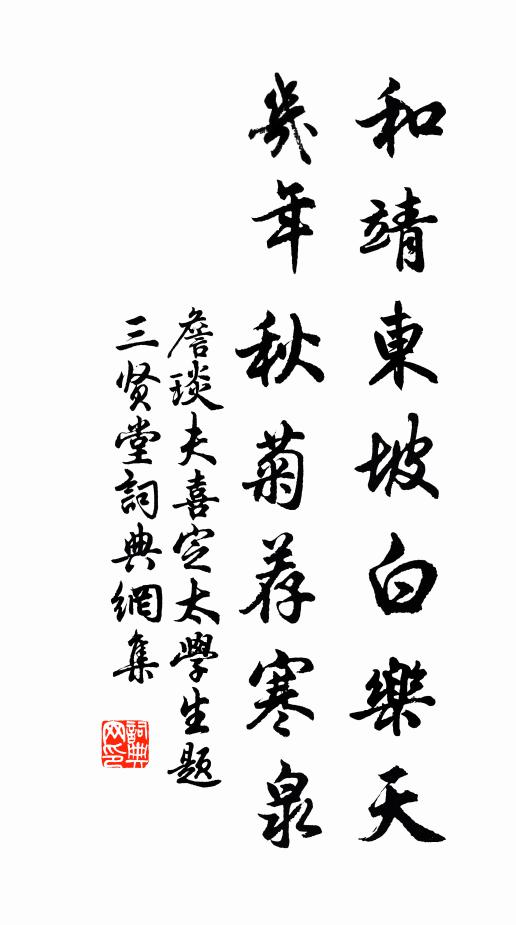 和靖東坡白樂天
幾年秋菊荐寒泉
詹琰夫喜定太學生題
三贤堂詞典網集
詞典
网印